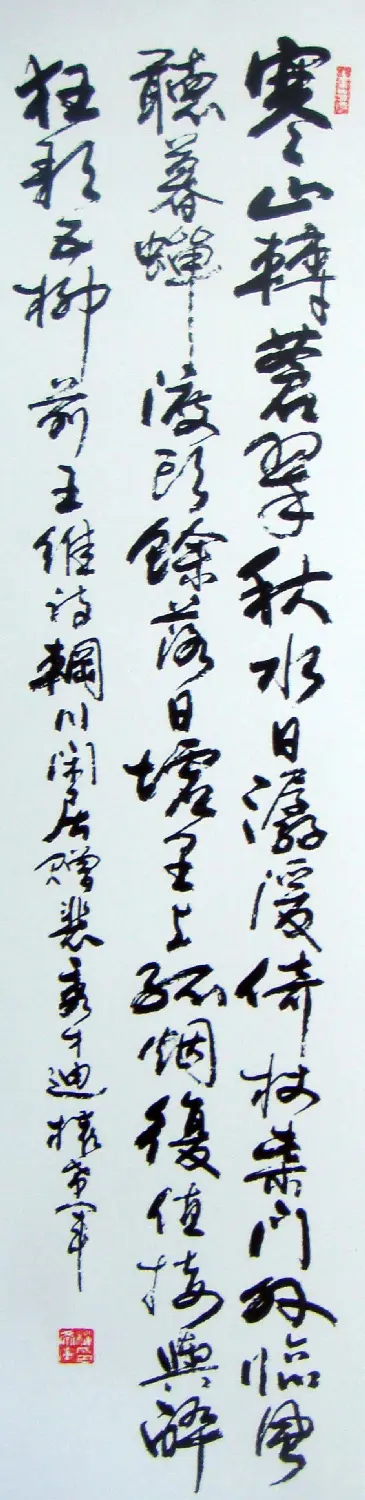 寒山轉蒼翠秋水日潺湲倚杖柴門外臨風
聽暮蟬渡頭餘落日墟里上孤烟復值接輿醉
狂歌五柳前王維詩輞川閑居贈裴秀才迪